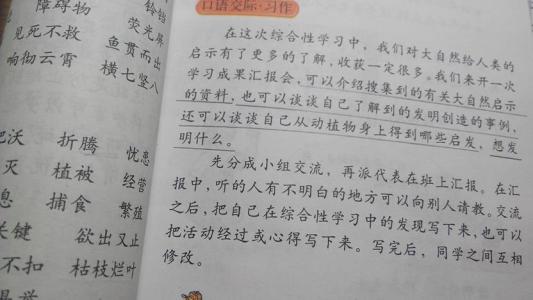 障碍物 铃铛
见死不救 荧光屏
响彻云霄 鱼贯而出
横七竖八
肥沃 折腾 忧患
灭 植被 经营
息 捕食 繁殖
关键 欲出又止
不扣 枯枝烂叶
口语交际·习作
在这次综合性学习中，我们对大自然给人类的
启示有了更多的了解，收获一定很多。我们来开一次
学习成果汇报会，可以介绍搜集到的有关大自然启示
的资料，也可以谈谈自己了解到的发明创造的事例，
还可以谈谈自己从动植物身上得到哪些启发，想发
明什么。
先分成小组交流，再派代表在班上汇报。在汇
报中，听的人有不明白的地方可以向别人请教。交流
之后，把自己在综合性学习中的发现写下来，也可以
把活动经过或心得写下来。写完后，同学之间互相
修改。